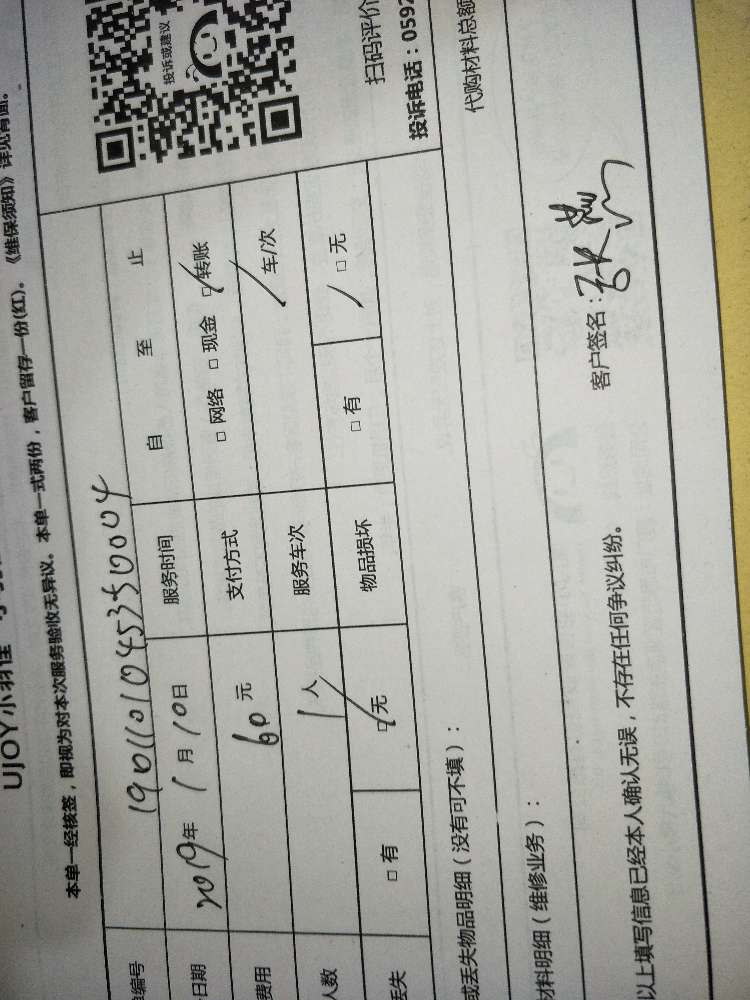 UJOY小羽佳
本单一经核签，即视为对本次服务验收无异议。本单一式两份，客户留存一份(红)。《维保须知》详见背面。
编号 1901101045350004
日期 2019年 1月 10日 服务时间 自 至 止
费用 60元 支付方式 □网络 □现金 □转账
人数 1人 服务车次 / 车/次
丢失 □有 □无 物品损坏 □有 □无
投诉或建议
扫码评价
投诉电话：0592
或丢失物品明细（没有可不填）：
代购材料总额
材料明细（维修业务）：
客户签名：张
以上填写信息已经本人确认无误，不存在任何争议纠纷。